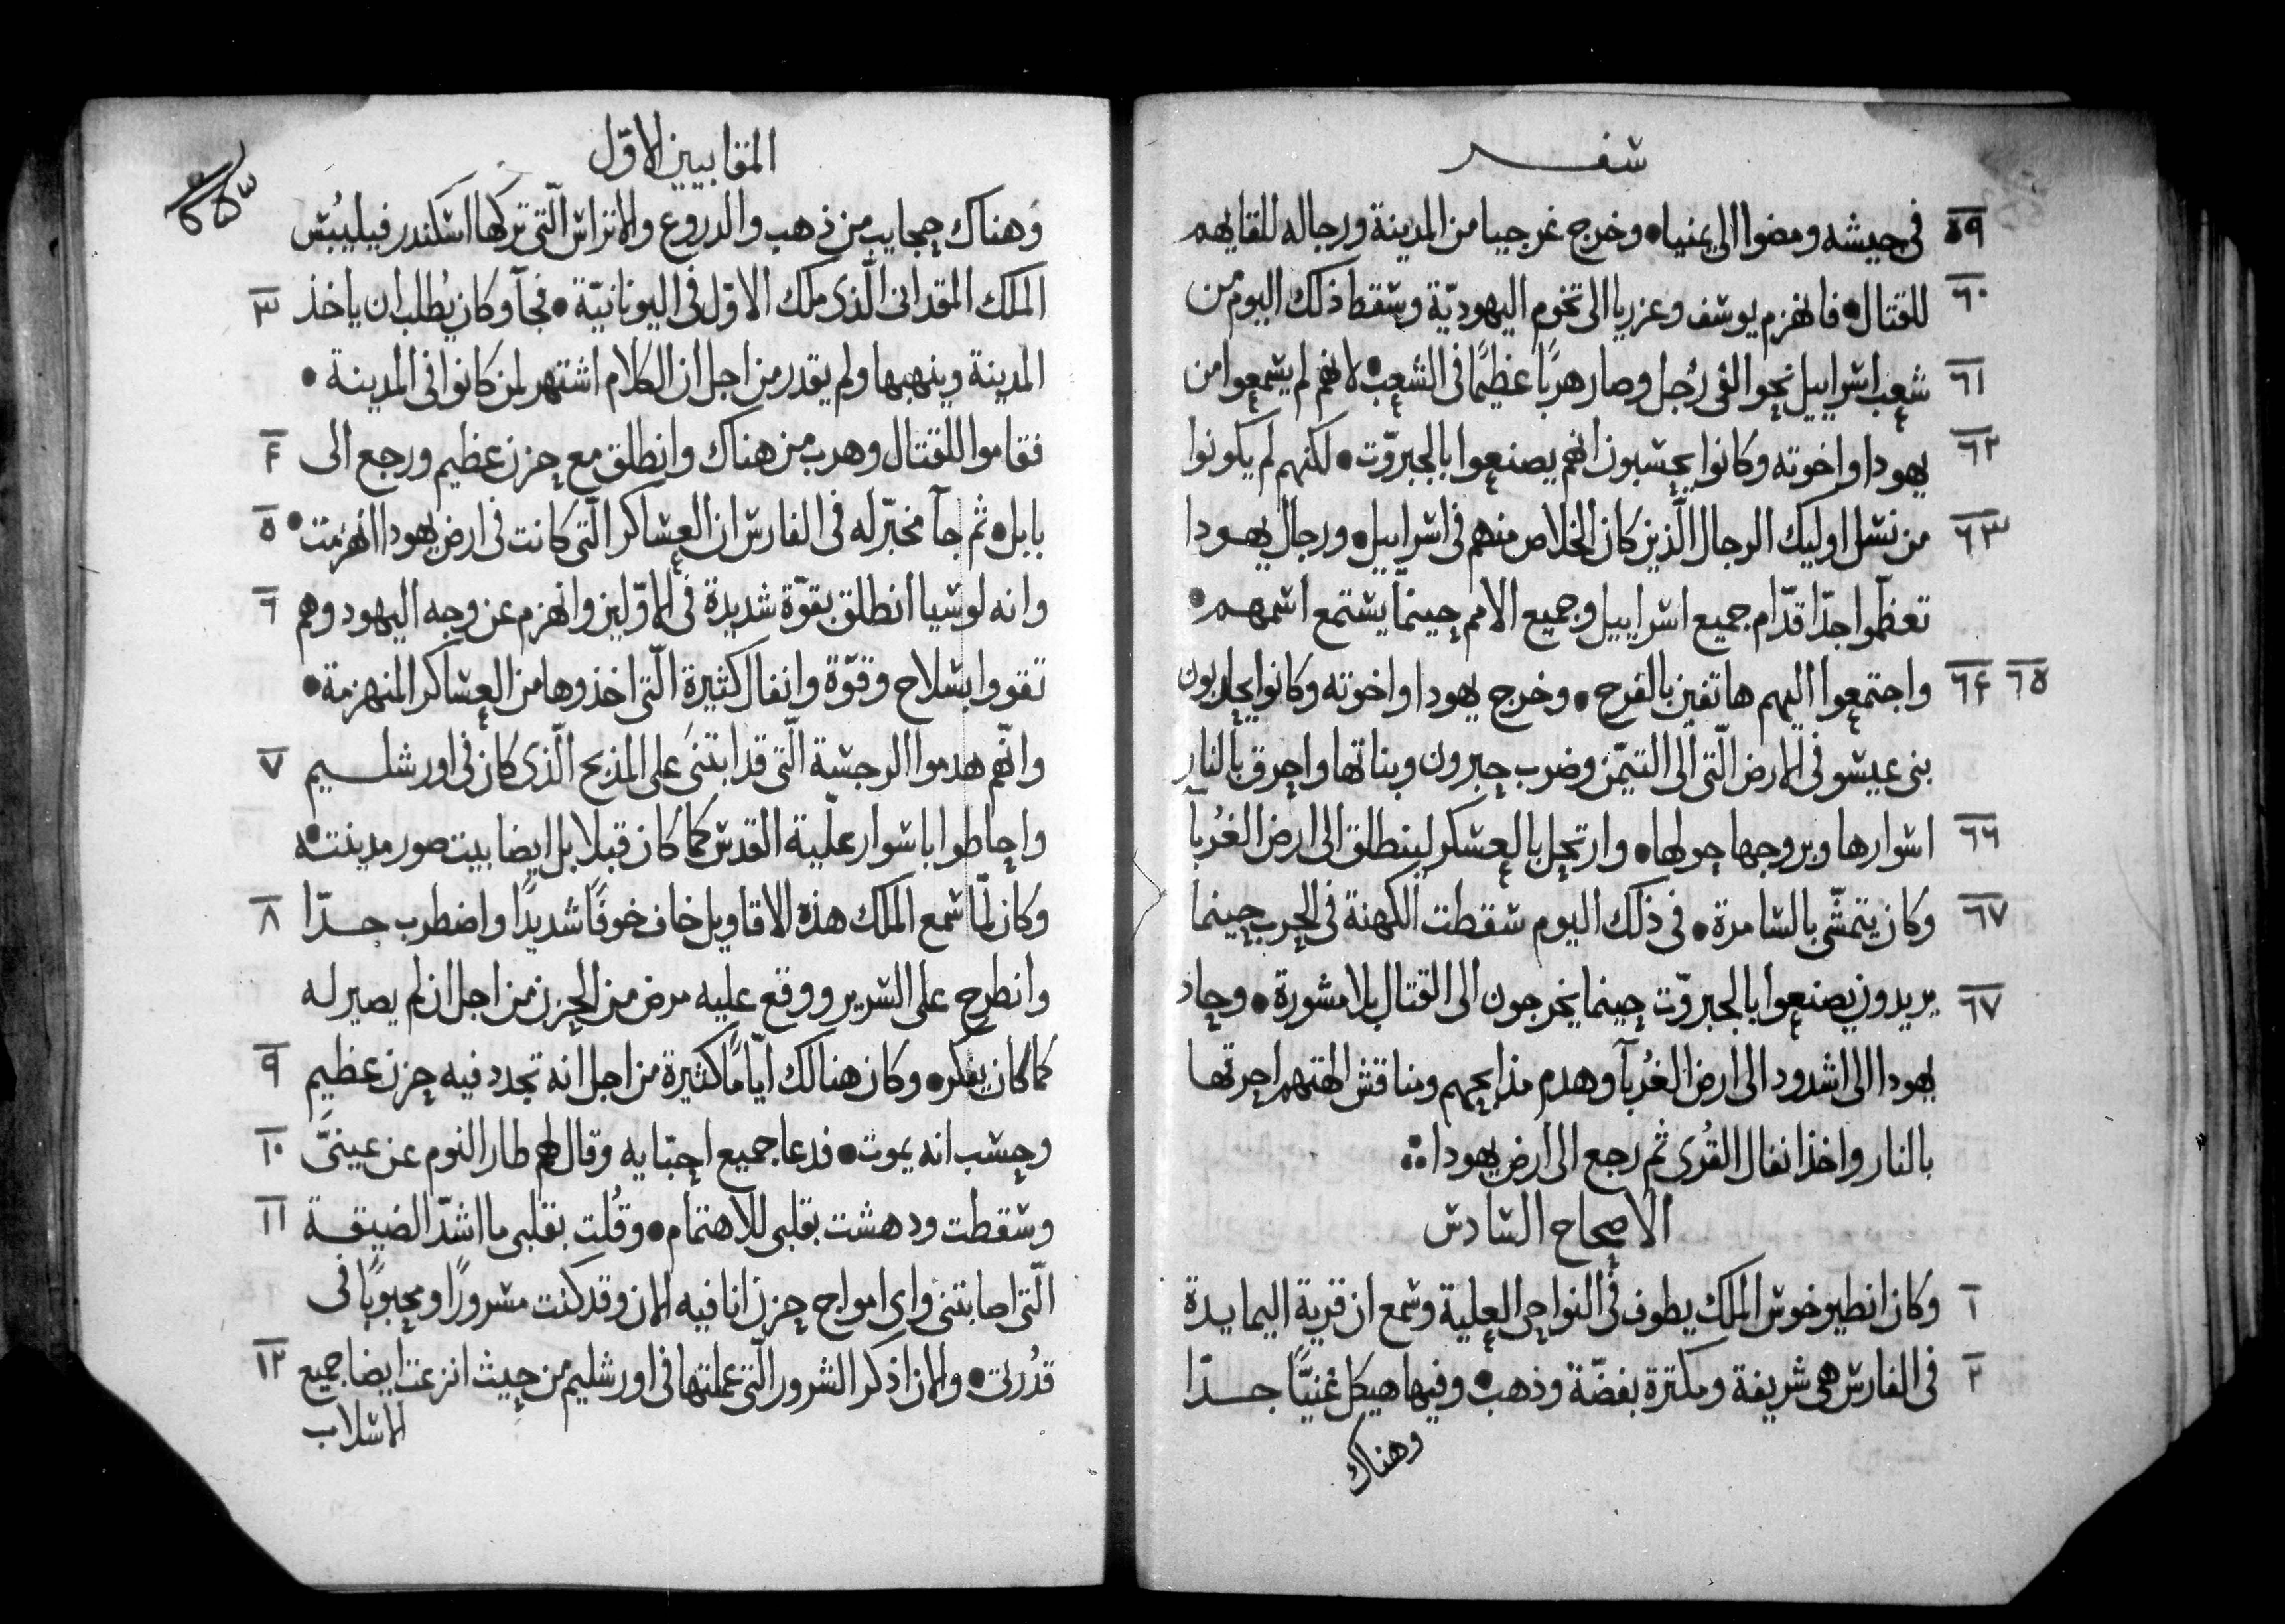 سفر
٥٩ فى جيشه ومضوا الى يمنيا • وخرج غرجيا من المدينة ورجاله للقايهم
٦٠ للقتال • فانهزم يوسف وعزريا الى تخوم اليهوديّة وسقط ذلك اليوم من
٦١ شعب اسراييل نحو الفى رُجل وصار هربًا عظيمًا فى الشعب • لانهم لم يسمعوا من
٦٢ يهودا واخوته وكانوا يحسبون انهم يصنعوا بالجبروّت • لكنهم لم يكونوا
٦٣ من نسل اوليك الرجال الّذين كان الخلاص منهم فى اسراييل • ورجال يهودا
تعظّموا جدّا قدّام جميع اسراييل وجميع الامم حينما يستمع اسمهم •
٦٤ ٦٥ واجتمعوا اليهم هاتفين بالفرح • وخرج يهودا واخوته وكانوا يحاربون
بنى عيسو فى الارض الّتى الى التيمّن وضرب حبرون وبناتها واحرق بالنار
٦٦ اسوارها وبروجها حولها • وارتحل بالعسكر لينطلق الى ارض الغُربآ
٦٧ وكان يتمشّى بالسامرة • فى ذلك اليوم سقطت الكهنة فى الحرب حينما
٦٧ يريدون يصنعوا بالجبروّت حينما يخرجون الى القتال بلا مشورة • وحاد
يهودا الى اشدود الى ارض الغُربآ وهدم مذابحهم ومناقش الهتهم احرقها
بالنار واخذ انفال القُرى ثم رجع الى ارض يهودا
الاصحاح السادس
١ وكان انطيوخوس الملك يطوف فى النواحى العلية وسمع ان قرية اليمايدة
٢ فى الفارس هى شريفة ومكتزة بفضّة وذهب • وفيها هيكل غنيًّا جدّا
وهناك
المقابيين الاوّل
وهناك حجايب من ذهب والدروع والاتراس الّتى تركها اسكندر فيليبُس
٣ الملك المقدانى الّذى ملك الاوّل فى اليونانيّة • فجآ وكان يُطلب ان ياخذ
المدينة وينهبها ولم يقدر من اجل ان الكلام اشتهر لمن كانوا فى المدينة •
٤ فقاموا للقتال وهرب من هناك وانطلق مع حزن عظيم ورجع الى
٥ بابل • ثم جآ مخبّر له فى الفارس ان العساكر الّتى كانت فى ارض يهودا انهزمت •
٦ وانه لوسيا انطلق بقوّة شديدة فى الاوّلين وانهزم عن وجه اليهود وهم
تقووا بسلاح وقوّة وانفال كثيرة الّتى اخذوها من العساكر المنهزمة •
٧ وانّهم هدموا الرجسة الّتى قد ابتنىَ على المذبح الّذى كان فى اورشليم
واحاطوا باسوار علّية القدس كما كان قبلا بل ايضا بيت صور مدينته
٨ وكان لمّا سمع الملك هذه الاقاويل خاف خوفًا شديدًا واضطرب جدّا
وانطرح على السرير ووقع عليه مرض من الحزن من اجل ان لم يصير له
٩ كما كان يفكر • وكان هنالك ايّامًا كثيرة من اجل انه تجدد فيه حزن عظيم
١٠ وحسب انه يموت • فدعا جميع احبّايه وقال لهم طار النوم عن عينىَّ
١١ وسقطت ودهشت بقلبى للاهتمام • وقُلت بقلبى ما اشدّ الضيقة
الّتى اصابتنى واى امواج حزن انا فيه الان وقد كنت مسرورًا ومحبوبًا فى
١٢ قدُرتى • والان اذكر الشرور الّتى عملتها فى اورشليم من حيث انزعت ايضا جميع
الاسلاب